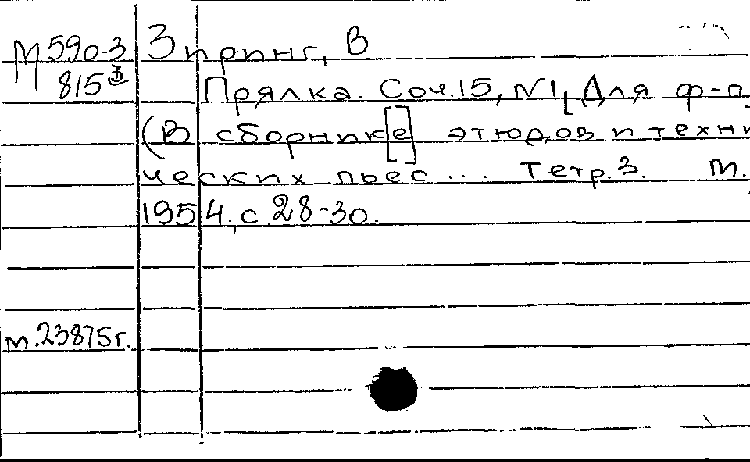 М590-3 Зпринг, В
815 II Прялка. Соч.15, N1[Для ф-п
(В сборник[е] этюдов и техни
ческих пьес... Тетр.3. М.
1954. с 28-30.
м.23875г.